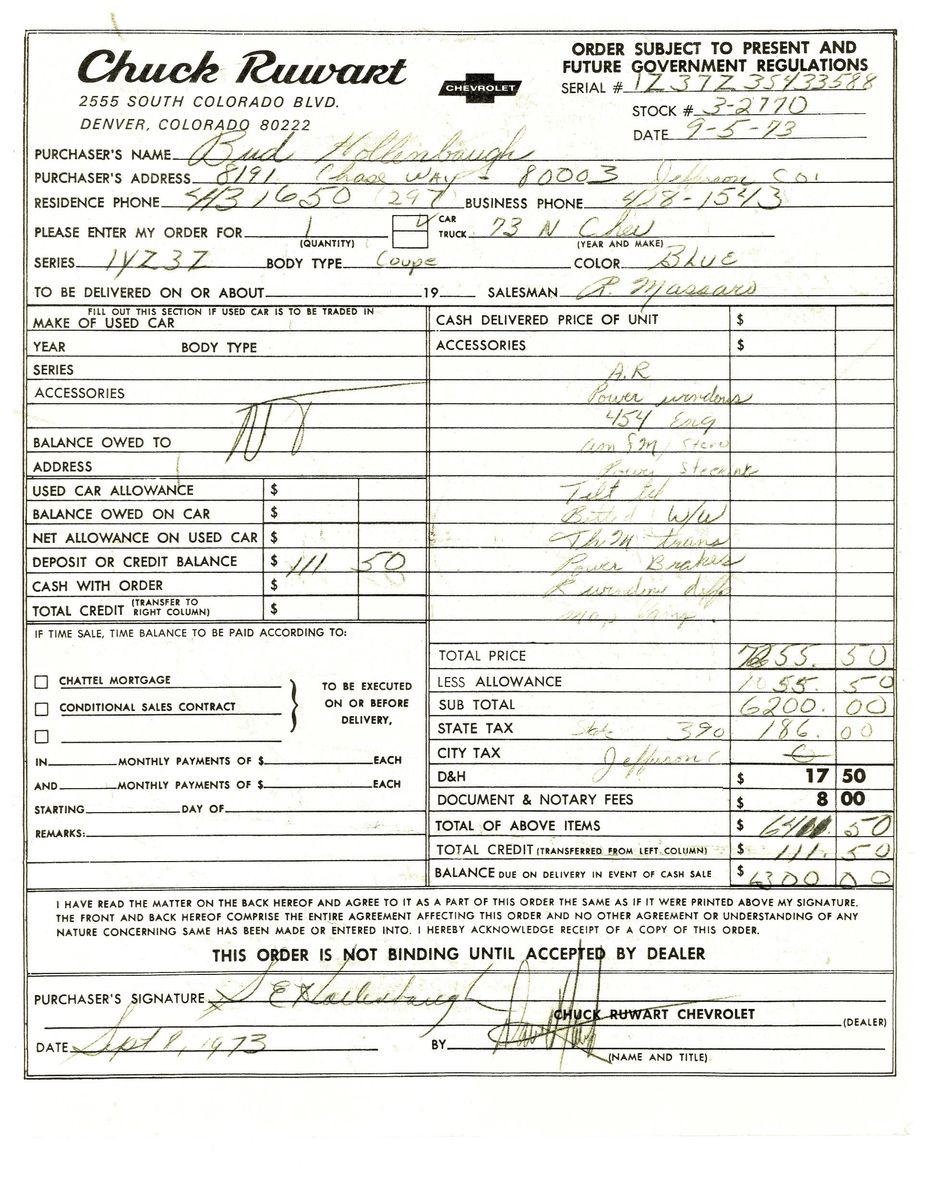 Chuck Ruwart
2555 SOUTH COLORADO BLVD.
DENVER, COLORADO 80222
CHEVROLET
ORDER SUBJECT TO PRESENT AND
FUTURE GOVERNMENT REGULATIONS
SERIAL # 1Z37Z3S433588
STOCK # 3-2770
DATE 9-5-73
PURCHASER'S NAME Bud Hollenbaugh
PURCHASER'S ADDRESS 8191 Chase Way - 80003 Jefferson Co.
RESIDENCE PHONE (297) BUSINESS PHONE 428-1543
PLEASE ENTER MY ORDER FOR 1 CAR 73 N Chev
(QUANTITY) TRUCK (YEAR AND MAKE)
SERIES 1YZ37 BODY TYPE Coupe COLOR BLUE
TO BE DELIVERED ON OR ABOUT 19 SALESMAN R. Massaro
FILL OUT THIS SECTION IF USED CAR IS TO BE TRADED IN
MAKE OF USED CAR
YEAR BODY TYPE
SERIES
ACCESSORIES
NT
BALANCE OWED TO
ADDRESS
USED CAR ALLOWANCE $
BALANCE OWED ON CAR $
NET ALLOWANCE ON USED CAR $
DEPOSIT OR CREDIT BALANCE $ 111 50
CASH WITH ORDER $
TOTAL CREDIT (TRANSFER TO RIGHT COLUMN) $
IF TIME SALE, TIME BALANCE TO BE PAID ACCORDING TO:
CHATTEL MORTGAGE
CONDITIONAL SALES CONTRACT
TO BE EXECUTED
ON OR BEFORE
DELIVERY,
IN MONTHLY PAYMENTS OF $ EACH
AND MONTHLY PAYMENTS OF $ EACH
STARTING DAY OF
REMARKS:
CASH DELIVERED PRICE OF UNIT $
ACCESSORIES $
Power windows
454 Eng
am fm/ Stereo
Power Steering
Tilt tel
W/W
trans
Power Brakes
R window
TOTAL PRICE 7255. 50
LESS ALLOWANCE 1055. 50
SUB TOTAL 6200. 00
STATE TAX 3% 186. 00
CITY TAX Jefferson C 0
D&H $ 17 50
DOCUMENT & NOTARY FEES $ 8 00
TOTAL OF ABOVE ITEMS $ 6411. 50
TOTAL CREDIT (TRANSFERRED FROM LEFT COLUMN) $ 111. 50
BALANCE DUE ON DELIVERY IN EVENT OF CASH SALE $ 6300 00
I HAVE READ THE MATTER ON THE BACK HEREOF AND AGREE TO IT AS A PART OF THIS ORDER THE SAME AS IF IT WERE PRINTED ABOVE MY SIGNATURE.
THE FRONT AND BACK HEREOF COMPRISE THE ENTIRE AGREEMENT AFFECTING THIS ORDER AND NO OTHER AGREEMENT OR UNDERSTANDING OF ANY
NATURE CONCERNING SAME HAS BEEN MADE OR ENTERED INTO. I HEREBY ACKNOWLEDGE RECEIPT OF A COPY OF THIS ORDER.
THIS ORDER IS NOT BINDING UNTIL ACCEPTED BY DEALER
PURCHASER'S SIGNATURE X S E Hollenbaugh
CHUCK RUWART CHEVROLET
(DEALER)
DATE Sept 8, 1973 BY
(NAME AND TITLE)